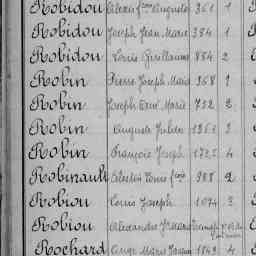 Robidou Alexis f.^çois Auguste 361 1
Robidou Joseph Jean Marie 384 1
Robidou Louis Guillaume 884 2
Robin Pierre Joseph Marie 368 1
Robin Joseph Marie 732 2
Robin Auguste Julien 1261 3
Robin François Joseph 1725 4
Robinault Célestin Louis f.çois 988 2
Robiou Louis Joseph 1074 3
Robiou Alexandre
Rochard Ange Marie 1849 4